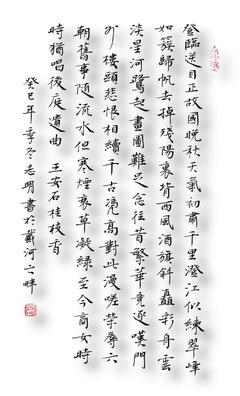 登臨送目正故國晚秋天氣初肅千里澄江似練翠峰
如簇歸帆去掉殘陽裏背西風酒旗斜矗彩舟雲
淡星河鷺起畫圖難足念往昔繁華竞逐嘆門
外樓頭悲恨相續千古憑高對此漫嗟榮辱六
朝舊事随流水但寒煙衰草凝綠至今商女時
時猶唱後庭遺曲 王安石桂枝香
癸巳年季冬志明書於戴河之畔